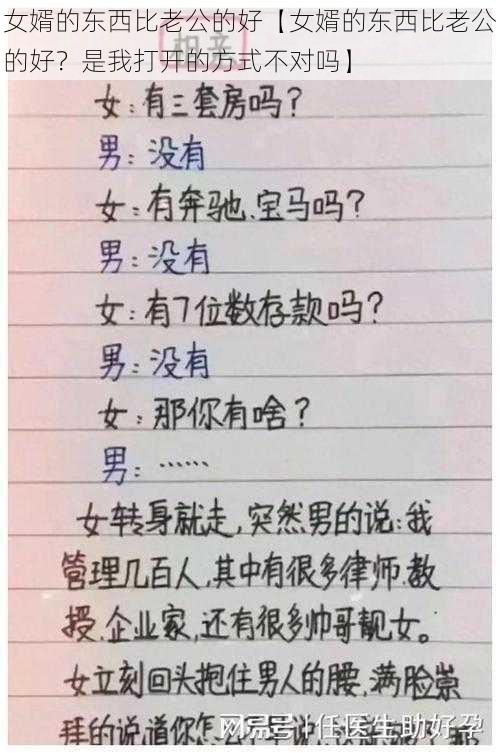 女婿的东西比老公的好【女婿的东西比老公
的好？是我打开的方式不对吗】
相亲
女：有三套房吗？
男：没有
女：有奔驰、宝马吗？
男：没有
女：有7位数存款吗？
男：没有
女：那你有啥？
男：……
女转身就走，突然男的说：我
管理几百人，其中有很多律师、教
授、企业家，还有很多帅哥靓女。
女立刻回头抱住男人的腰，满脸崇
拜的说道你怎
网易号 | 任医生助好孕